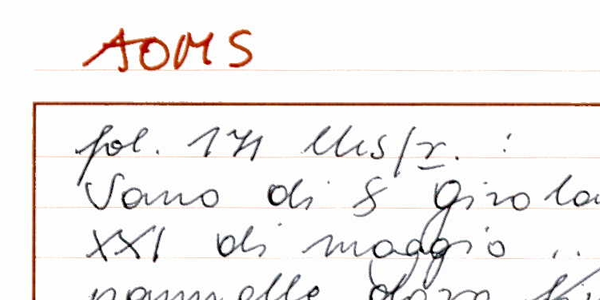 AOMS
fol. 171 bis/r. :
Vano di S girola
XXI di maggio ..